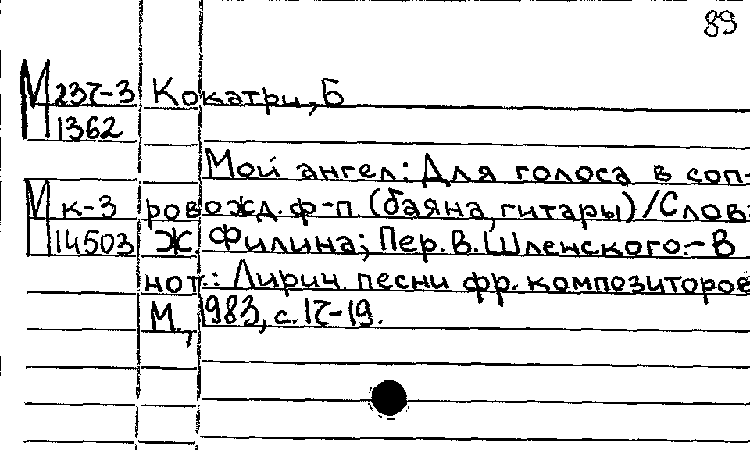 89
М 237-3 Кокатри, Б
1362
Мой ангел: Для голоса в соп-
М к-3 ровожд. ф-п (баяна, гитары)/Слова
14503 Ж. Филина; Пер. В. Шленского.- В
нот.: Лирич. песни фр. композиторов
М., 1983, с. 17-19.